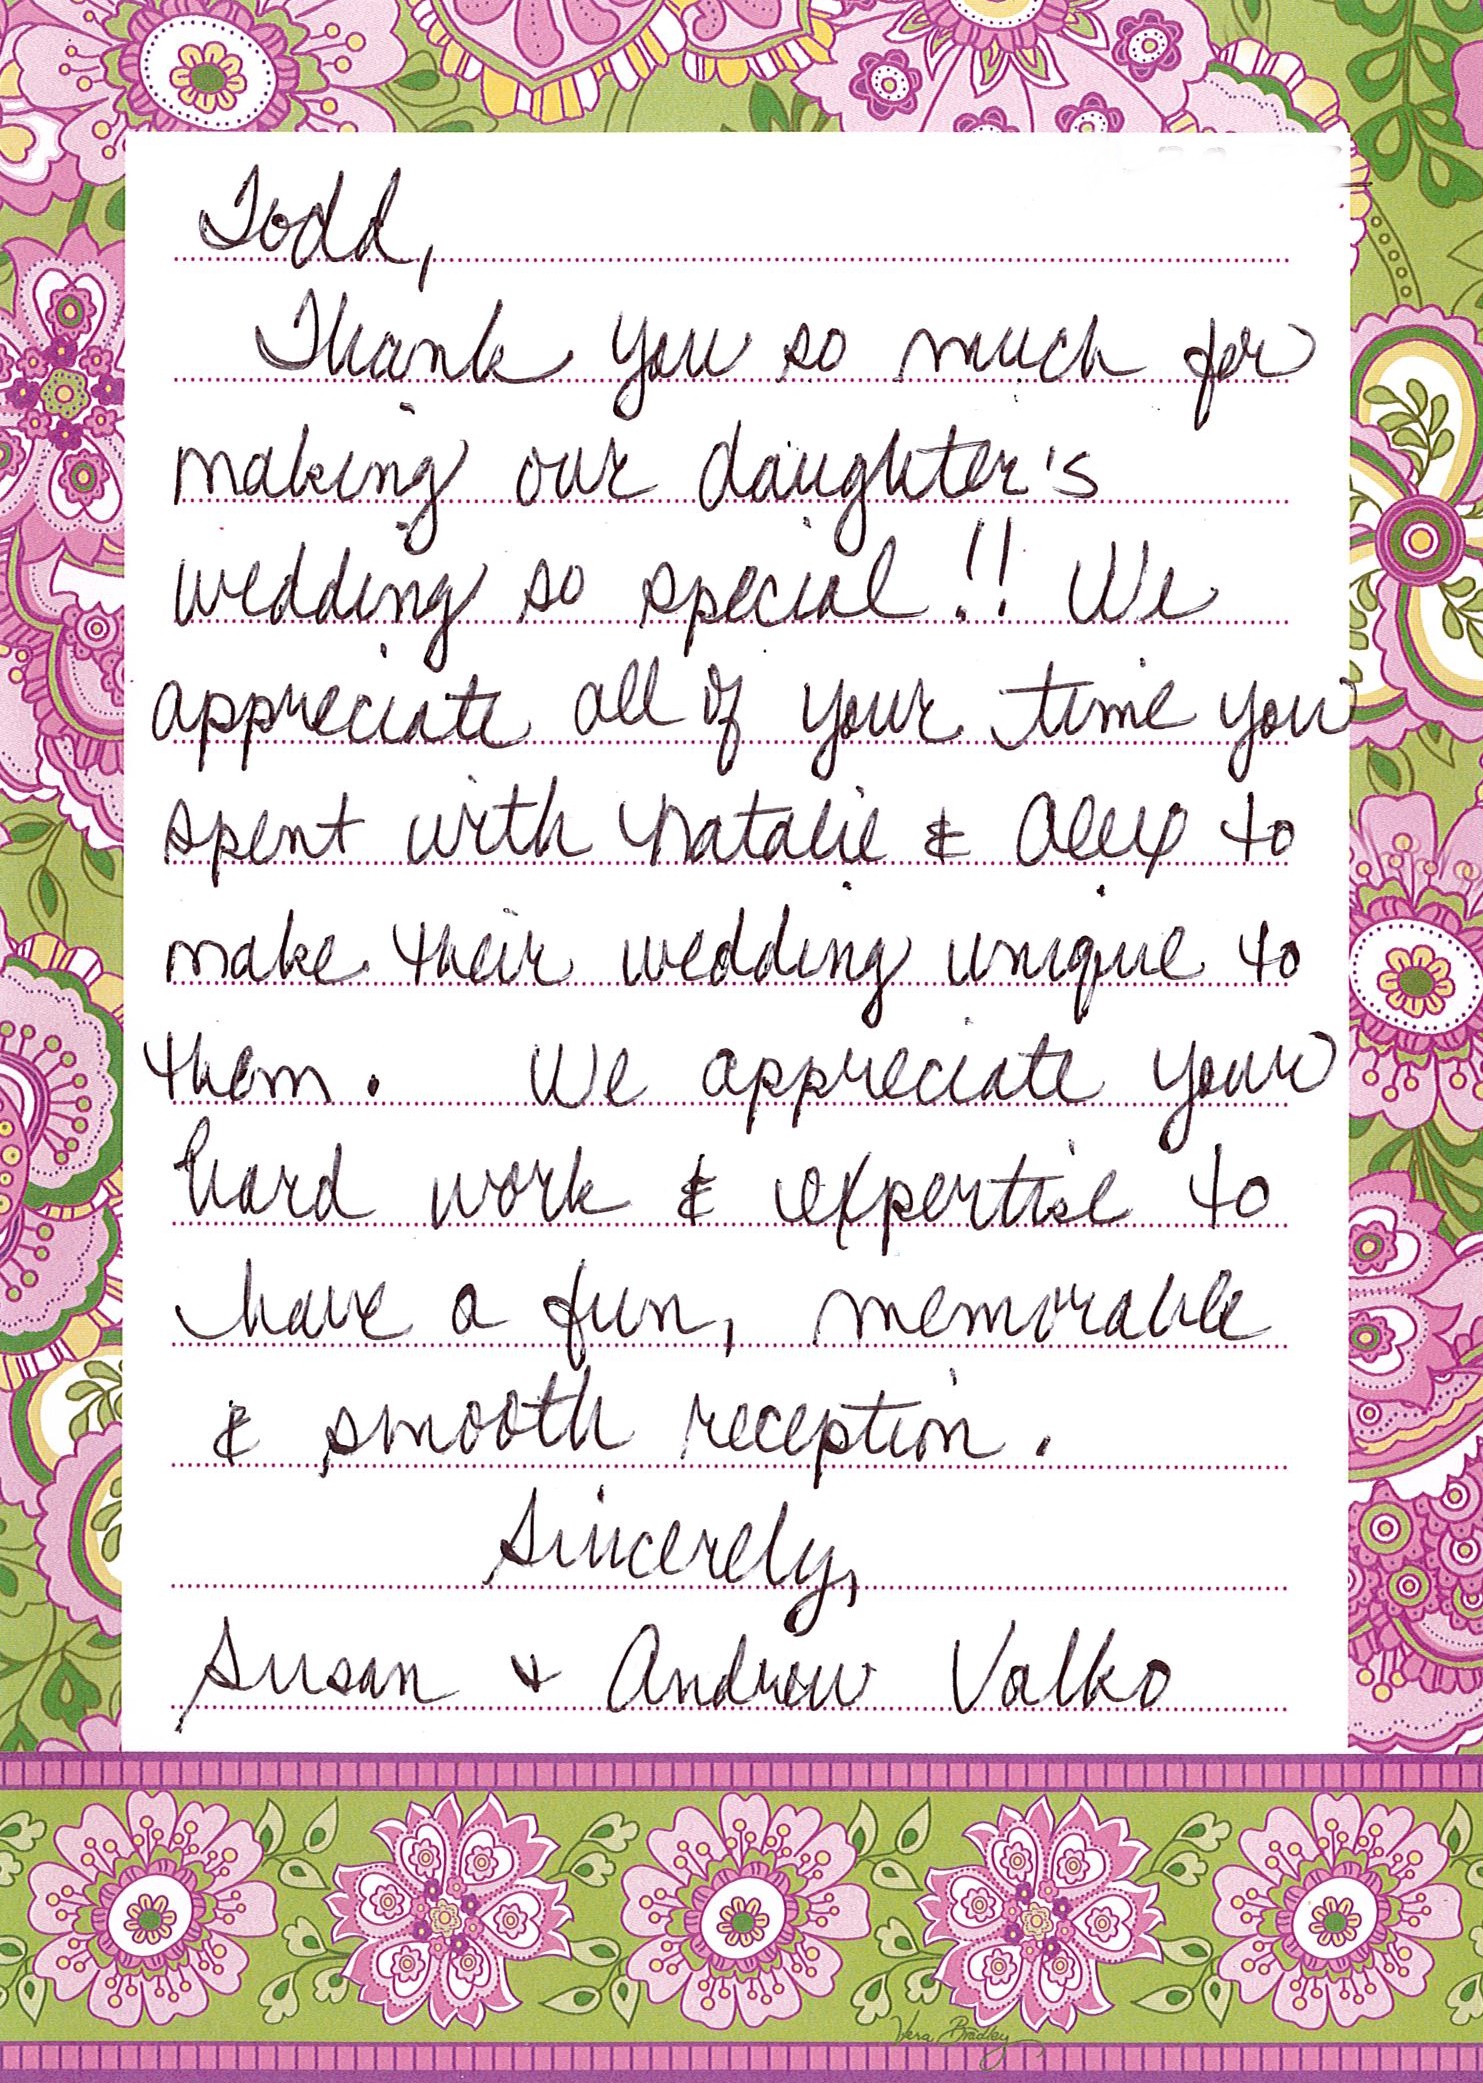 Todd,
Thank you so much for
making our daughter's
wedding so special!! We
appreciate all of your time you
spent with Natalie & Alex to
make their wedding unique to
them. We appreciate your
hard work & expertise to
have a fun, memorable
& smooth reception.
Sincerely,
Susan & Andrew Valko
Vera Bradley